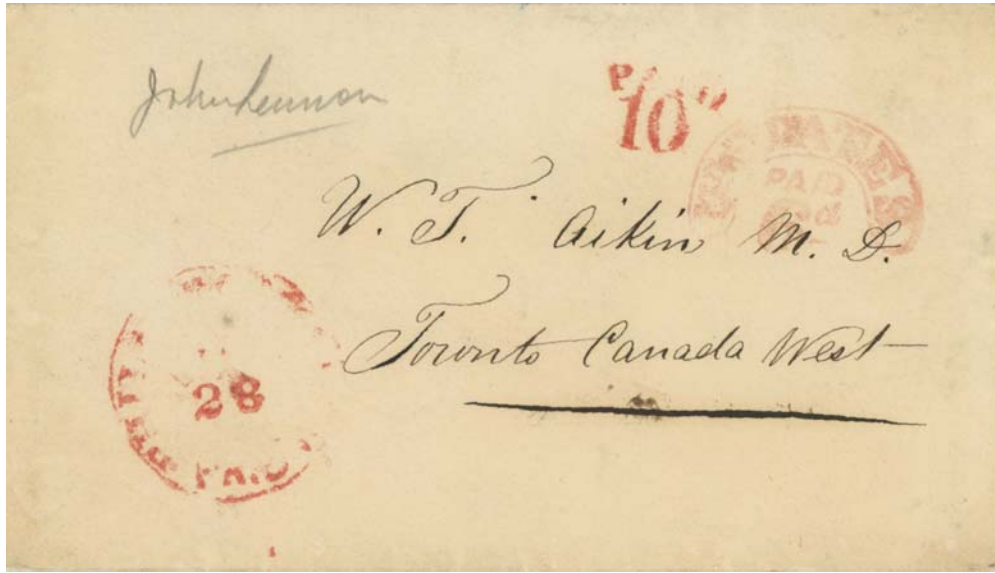 John Lennon
PAID
10
PAID
W. T. Aikin M. D.
Toronto Canada West
28
PAID